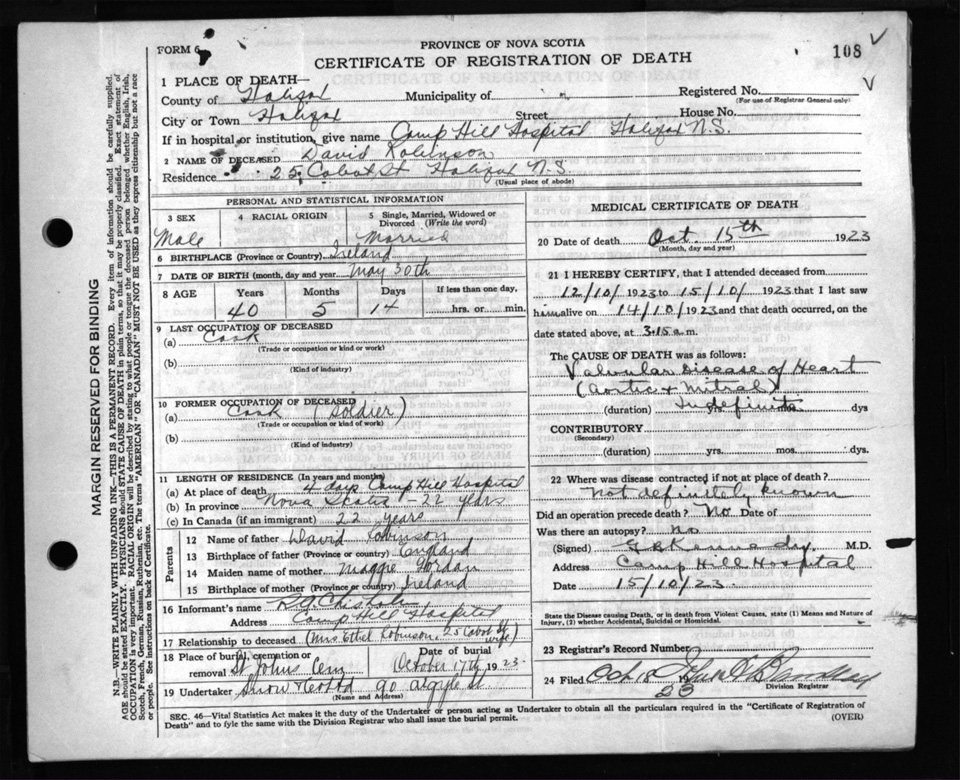 FORM 6
PROVINCE OF NOVA SCOTIA
CERTIFICATE OF REGISTRATION OF DEATH
108
1 PLACE OF DEATH—
County of Halifax Municipality of " Registered No.
(For use of Registrar General only)
City or Town Halifax Street House No.
If in hospital or institution, give name Camp Hill Hospital Halifax N.S.
2 NAME OF DECEASED David Robinson
Residence 25 Cabot St Halifax N.S.
(Usual place of abode)
PERSONAL AND STATISTICAL INFORMATION
3 SEX 4 RACIAL ORIGIN 5 Single, Married, Widowed or Divorced (Write the word)
Male Married
6 BIRTHPLACE (Province or Country) Ireland
7 DATE OF BIRTH (month, day and year May 30th
8 AGE Years Months Days If less than one day,
40 5 14 hrs. or min.
9 LAST OCCUPATION OF DECEASED
(a) Cook
(Trade or occupation or kind or work)
(b)
(Kind of industry)
10 FORMER OCCUPATION OF DECEASED
(a) Cook (Soldier)
(Trade or occupation or kind of work)
(b)
(Kind of industry)
11 LENGTH OF RESIDENCE (In years and months)
(a) At place of death 4 days Camp Hill Hospital
(b) In province Nova Scotia - 22 years
(c) In Canada (if an immigrant) 22 years
Parents
12 Name of father David Robinson
13 Birthplace of father (Province or country) England
14 Maiden name of mother Maggie Jordan
15 Birthplace of mother (Province or country) Ireland
16 Informant's name
Address Camp Hill Hospital
17 Relationship to deceased (Mrs Ethel Robinson, 25 Cabot St wife)
18 Place of burial, cremation or removal St Johns Cem Date of burial October 17th 1923
19 Undertaker Snow & Co Ltd 90 Argyle St
(Name and Address)
MEDICAL CERTIFICATE OF DEATH
20 Date of death Oct. 15th 1923
(Month, day and year)
21 I HEREBY CERTIFY, that I attended deceased from
12/10/1923 to 15/10/1923 that I last saw
him alive on 14/10/1923 and that death occurred, on the
date stated above, at 3.15 a.m.
The CAUSE OF DEATH was as follows:
Valvular Disease of Heart
(Aortic & Mitral)
(duration) Indefinite yrs. mos. dys
CONTRIBUTORY
(Secondary)
(duration) yrs. mos. dys.
22 Where was disease contracted if not at place of death?
Not definitely known
Did an operation precede death? No Date of
Was there an autopsy? No
(Signed) Kennedy M.D.
Address Camp Hill Hospital
Date 15/10/23
State the Disease causing Death, or in death from Violent Causes, state (1) Means and Nature of Injury, (2) whether Accidental, Suicidal or Homicidal.
23 Registrar's Record Number
24 Filed Oct 18 1923
Division Registrar
SEC. 46—Vital Statistics Act makes it the duty of the Undertaker or person acting as Undertaker to obtain all the particulars required in the "Certificate of Registration of
Death" and to fyle the same with the Division Registrar who shall issue the burial permit.
(OVER)
MARGIN RESERVED FOR BINDING
N.B.—WRITE PLAINLY WITH UNFADING INK—THIS IS A PERMANENT RECORD. Every item of information should be carefully supplied.
AGE should be stated EXACTLY. PHYSICIANS should STATE CAUSE OF DEATH in plain terms, so that it may be properly classified. Exact statement of
OCCUPATION is very important. RACIAL ORIGIN will be described by stating to what people or tongue the deceased person belonged whether English, Irish,
Scotch, French, German, Russian, Ruthenian, etc. The terms "AMERICAN" OR "CANADIAN" MUST NOT BE USED as they express citizenship but not a race
or people. See instructions on back of Certificate.